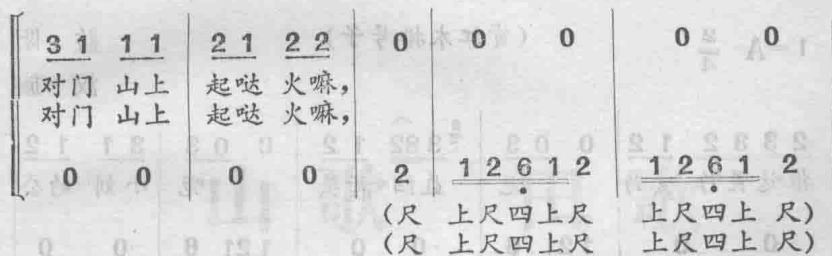 3 1 1 1 | 2 1 2 2 | 0 | 0 0 | 0 0
对门 山上 起哒 火嘛，
对门 山上 起哒 火嘛，
0 0 | 0 0 | 2 | 1 2 6̣ 1 2 | 1 2 6̣ 1 2
(尺 上尺四上尺 上尺四上 尺)
(尺 上尺四上尺 上尺四上 尺)